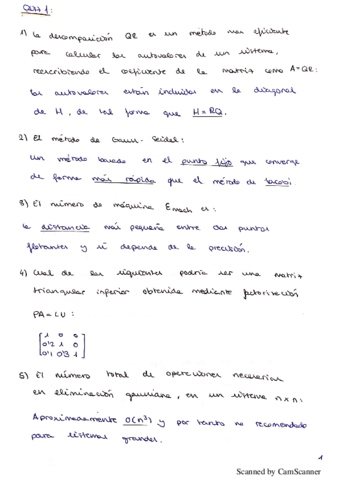 Quiz 1:
1) La descomposición QR es un método más eficiente
para calcular los autovalores de un sistema,
reescribiendo el coeficiente de la matriz como A=QR:
los autovalores están incluidos en la diagonal
de H, de tal forma que H=RQ.
2) El método de Gauss-Seidel:
un método basado en el punto fijo que converge
de forma más rápida que el método de Jacobi.
3) El número de máquina Emach es:
la distancia más pequeña entre dos puntos
flotantes y sí depende de la precisión.
4) Cual de las siguientes podría ser una matriz
triangular inferior obtenida mediante factorización
PA=LU:
1 0 0
0'2 1 0
0'1 0'3 1
5) El número total de operaciones necesarias
en eliminación gaussiana, en un sistema n×n:
Aproximadamente O(n³) y por tanto no recomendado
para sistemas grandes.
1
Scanned by CamScanner